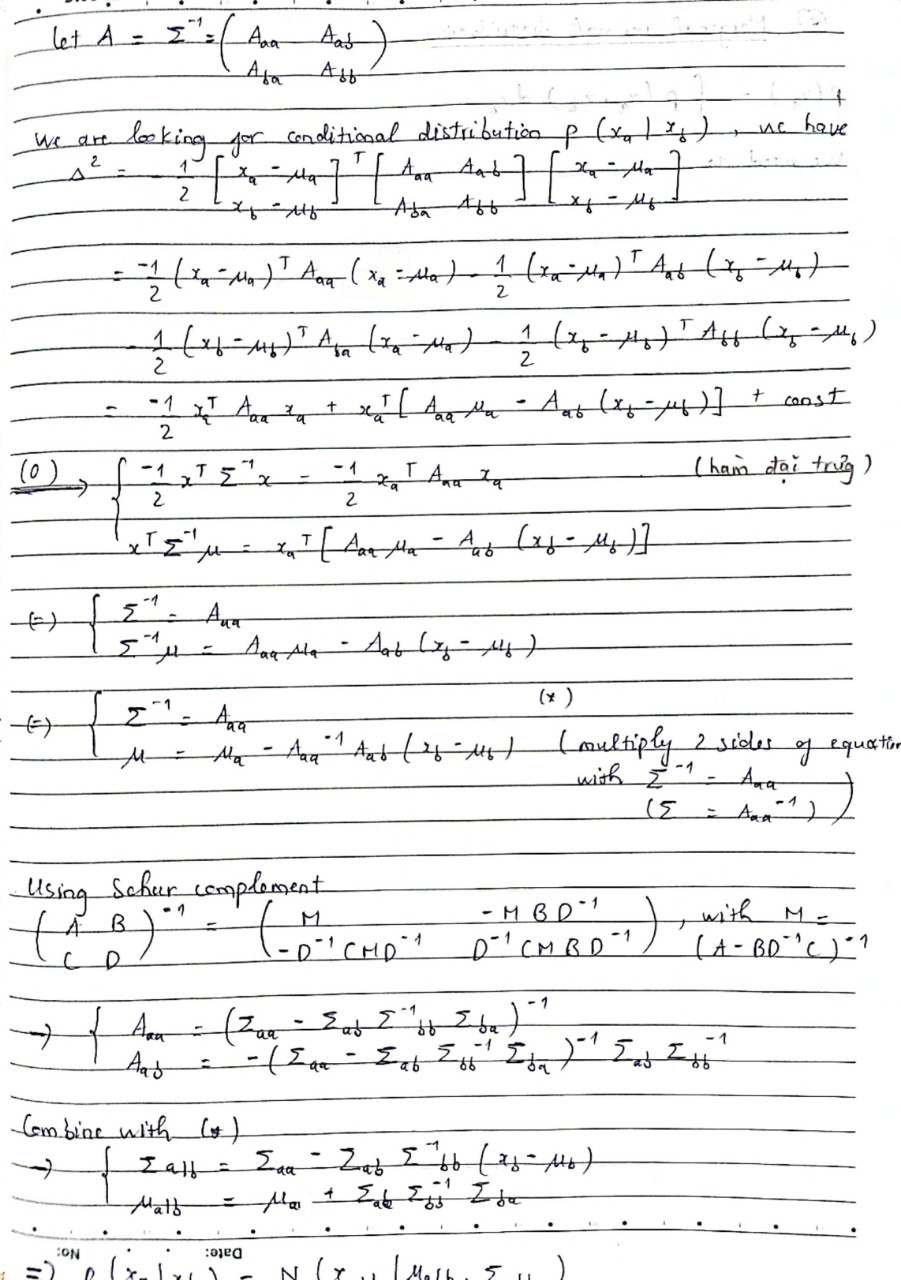 let A = Σ⁻¹ = ( Aaa Aab
Aba Abb )
We are looking for conditional distribution p (xa | xb), we have
Δ² = - 1/2 [ xa - μa ; xb - μb ]ᵀ [ Aaa Aab ; Aba Abb ] [ xa - μa ; xb - μb ]
= -1/2 (xa - μa)ᵀ Aaa (xa - μa) - 1/2 (xa - μa)ᵀ Aab (xb - μb)
- 1/2 (xb - μb)ᵀ Aba (xa - μa) - 1/2 (xb - μb)ᵀ Abb (xb - μb)
= -1/2 xaᵀ Aaa xa + xaᵀ [ Aaa μa - Aab (xb - μb)] + const
(0) → { -1/2 xᵀ Σ⁻¹ x = -1/2 xaᵀ Aaa xa (hàm đại trưg)
xᵀ Σ⁻¹ μ = xaᵀ [ Aaa μa - Aab (xb - μb)]
(=) { Σ⁻¹ = Aaa
Σ⁻¹ μ = Aaa μa - Aab (xb - μb)
(=) { Σ⁻¹ = Aaa (*)
μ = μa - Aaa⁻¹ Aab (xb - μb) (multiply 2 sides of equation
with Σ⁻¹ = Aaa
(Σ = Aaa⁻¹) )
Using Schur complement
( A B ; C D )⁻¹ = ( M -MBD⁻¹ ; -D⁻¹CMD⁻¹ D⁻¹CMBD⁻¹ ), with M =
(A - BD⁻¹C)⁻¹
→ { Aaa = (Σaa - Σab Σ⁻¹bb Σba)⁻¹
Aab = -(Σaa - Σab Σbb⁻¹ Σba)⁻¹ Σab Σbb⁻¹
Combine with (*)
→ { Σa|b = Σaa - Σab Σ⁻¹bb (xb - μb)
μa|b = μa + Σab Σbb⁻¹ Σba
No: Date: